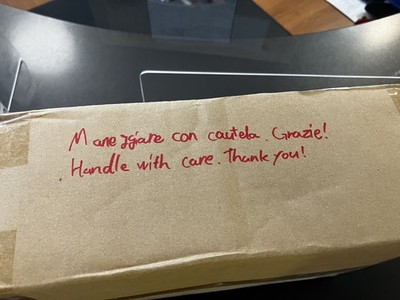 Maneggiare con cautela. Grazie!
Handle with care. Thank you!